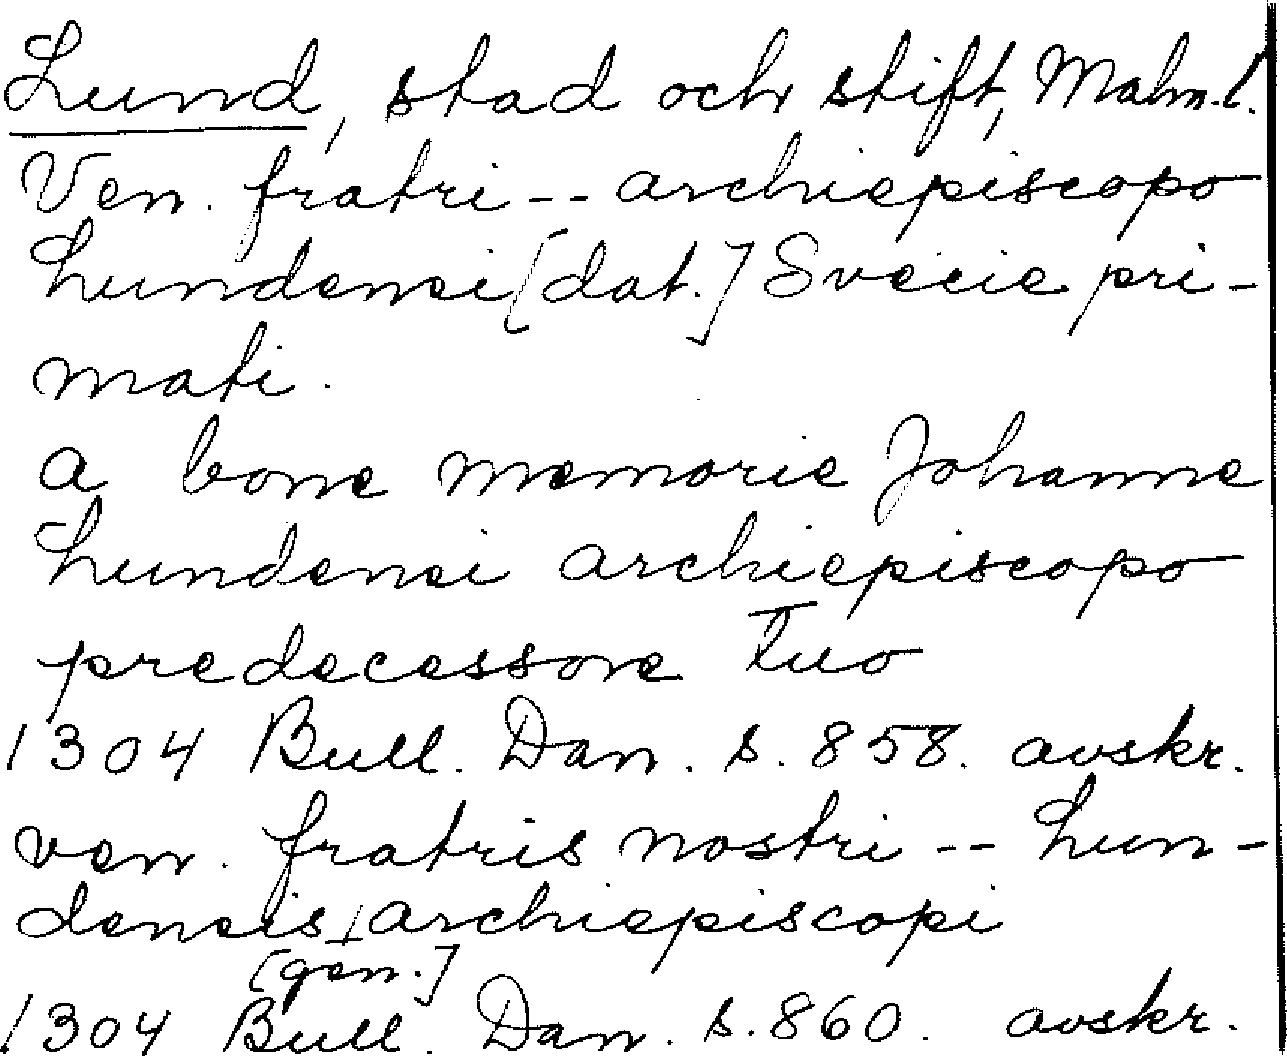 Lund, stad och stift, Malm.l.
Ven. fratri -- archiepiscopo
Lundensi [dat.] Svecie pri-
mati.
a bone memorie Johanne
Lundensi archiepiscopo
predecessore tuo
1304 Bull. Dan. s. 858. avskr.
ven. fratris nostri -- Lun-
densis archiepiscopi
[gen.]
1304 Bull. Dan. s. 860. avskr.